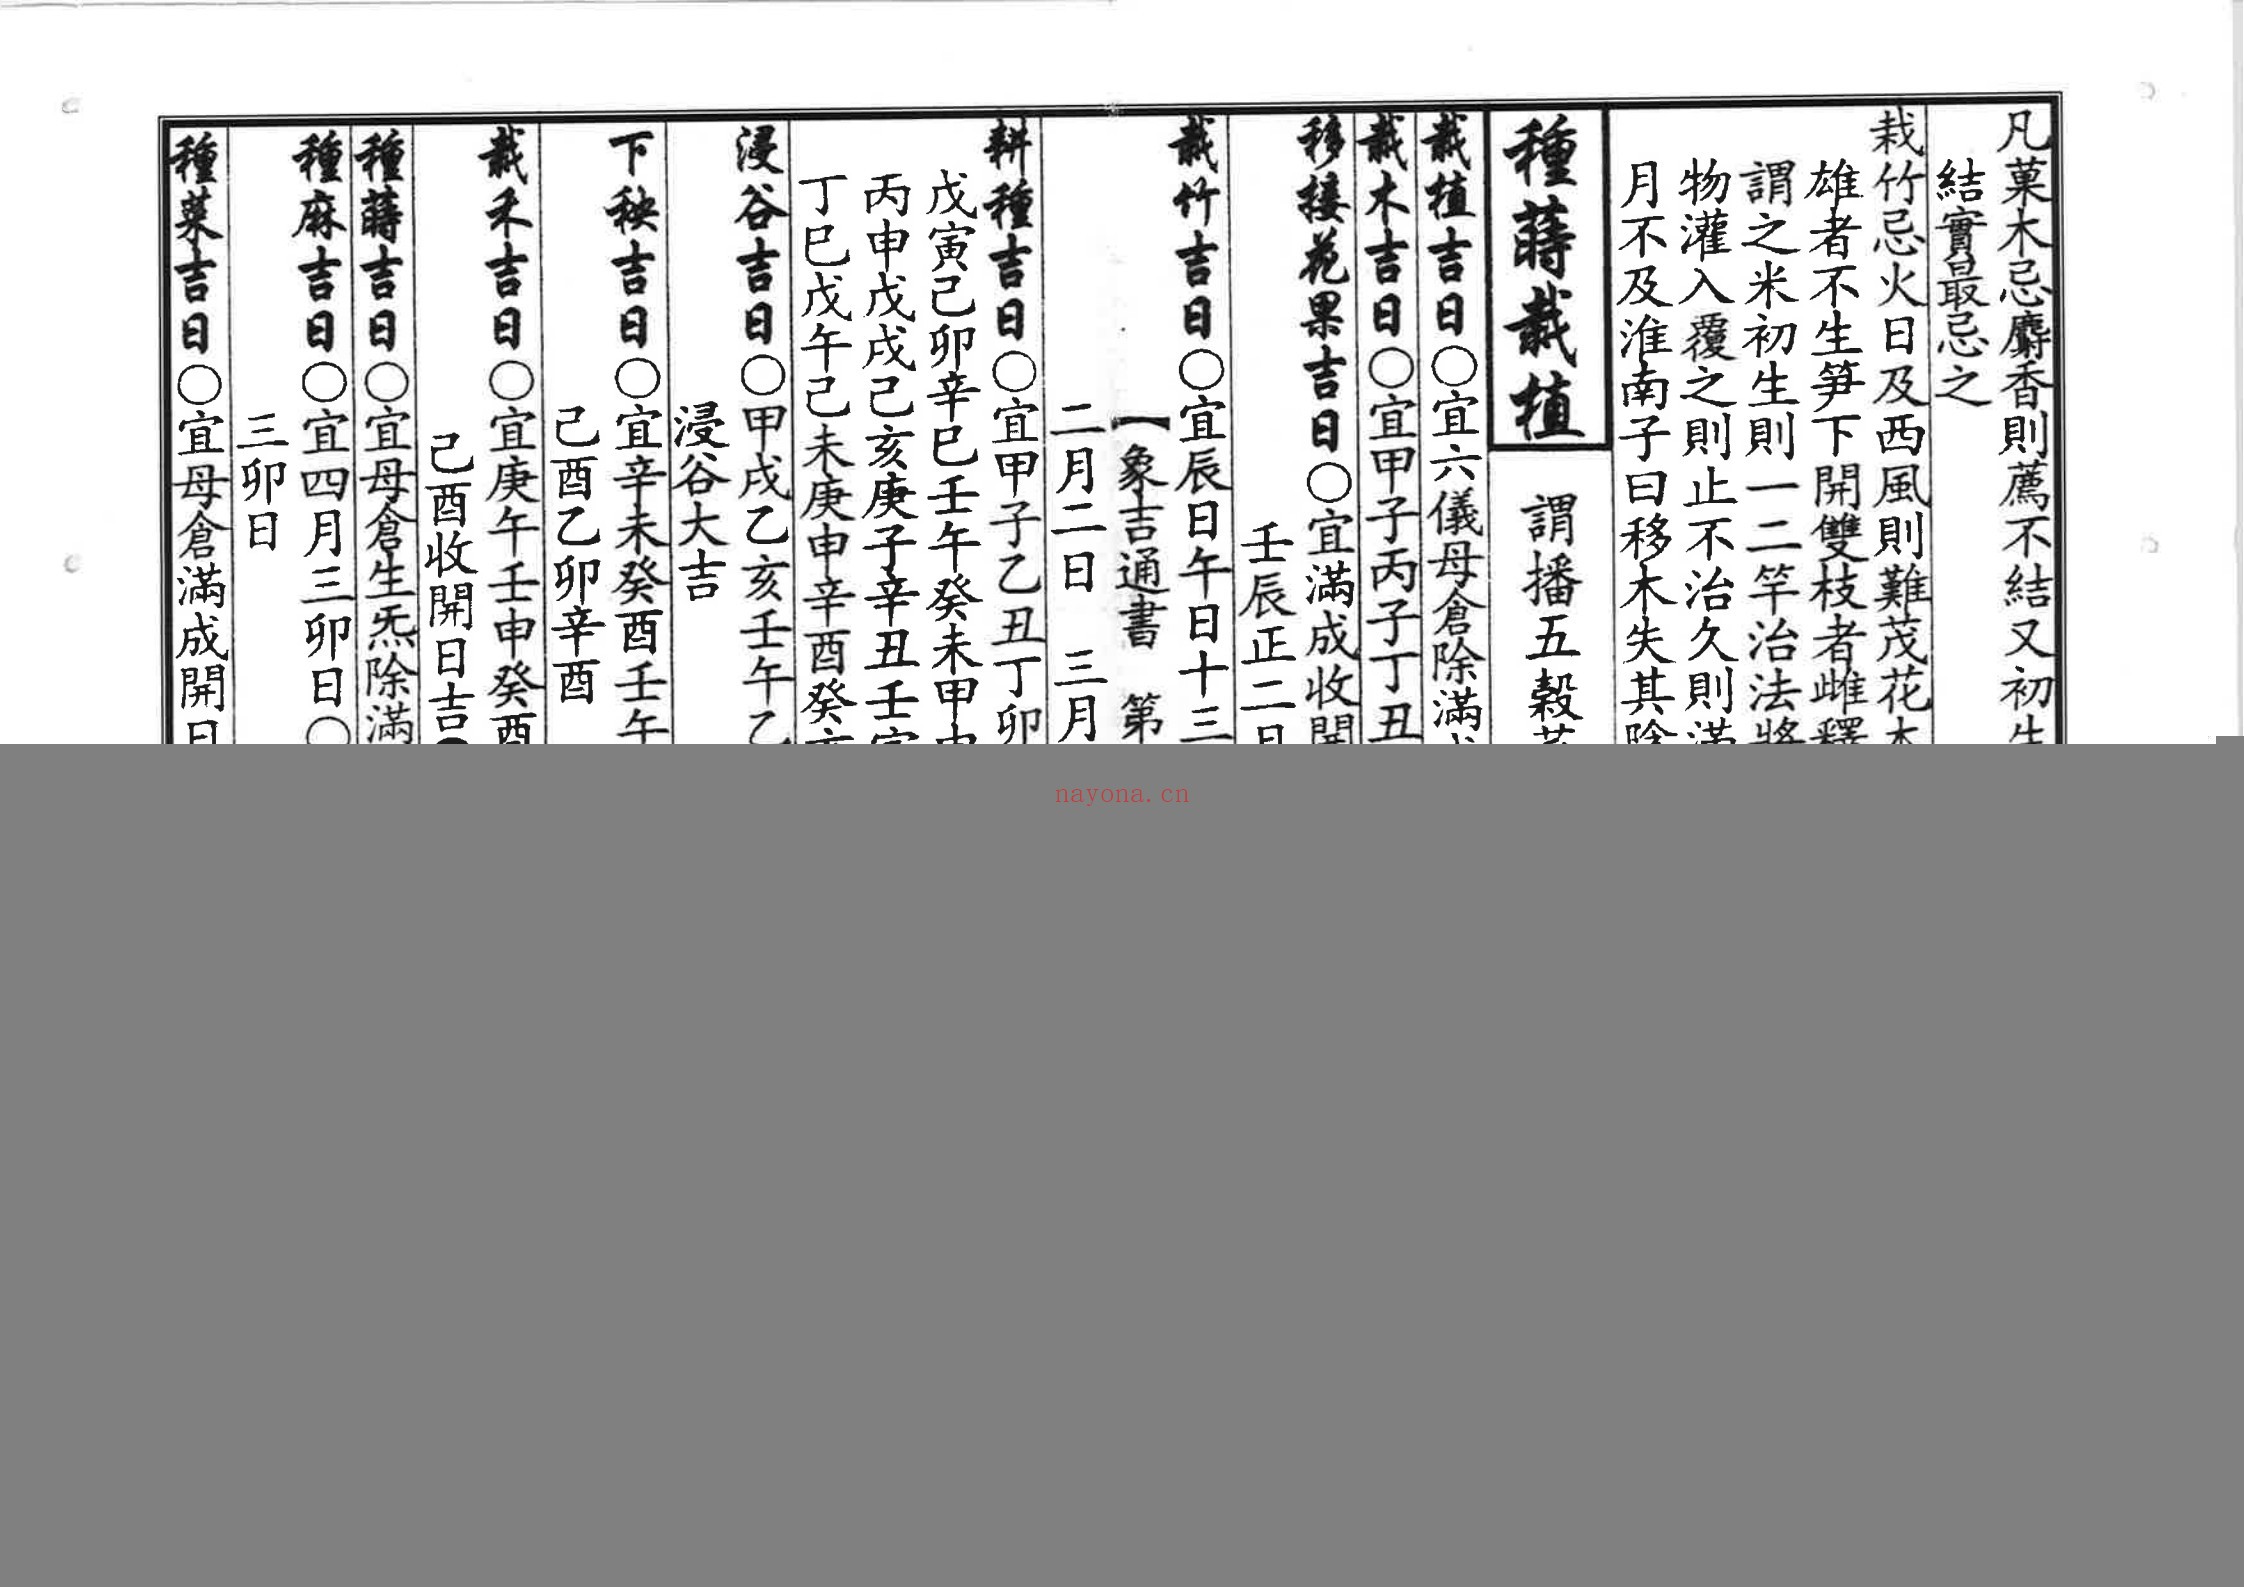 凡菓木忌麝香則薦不結又初生
結實最忌之
栽竹忌火日及西風則難茂花木
雄者不生笋下開雙枝者雌釋
謂之米初生則一二竿治法將
物灌入覆之則止不治久則滿
月不及淮南子曰移木失其陰
種蒔栽植
謂播五穀
栽植吉日○宜六儀母倉除滿
栽木吉日○宜甲子丙子丁丑
移接花果吉日○宜滿成收開
壬辰正二日
栽竹吉日○宜辰日午日十三
【象吉通書 第
二月二日 三月
耕種吉日○宜甲子乙丑丁卯
戊寅己卯辛巳壬午癸未甲申
丙申戊戌己亥庚子辛丑壬寅
丁巳戊午己未庚申辛酉癸亥
浸谷吉日○甲戌乙亥壬午乙
浸谷大吉
下秧吉日○宜辛未癸酉壬午
己酉乙卯辛酉
栽禾吉日○宜庚午壬申癸酉
己酉收開日吉
種蒔吉日○宜母倉生炁除滿
種麻吉日○宜四月三卯日○
三卯日
種菜吉日○宜母倉滿成開日
nayona.cn